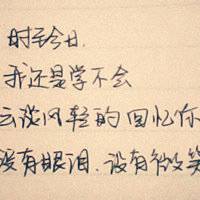 时至今日.
我还是学不会
云淡风轻的回忆你
没有眼泪.没有微笑